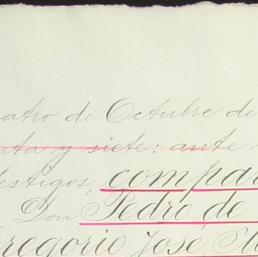 atro de Octubre de
nta y siete: ante
estigos, compa
Don Pedro de
regorio José